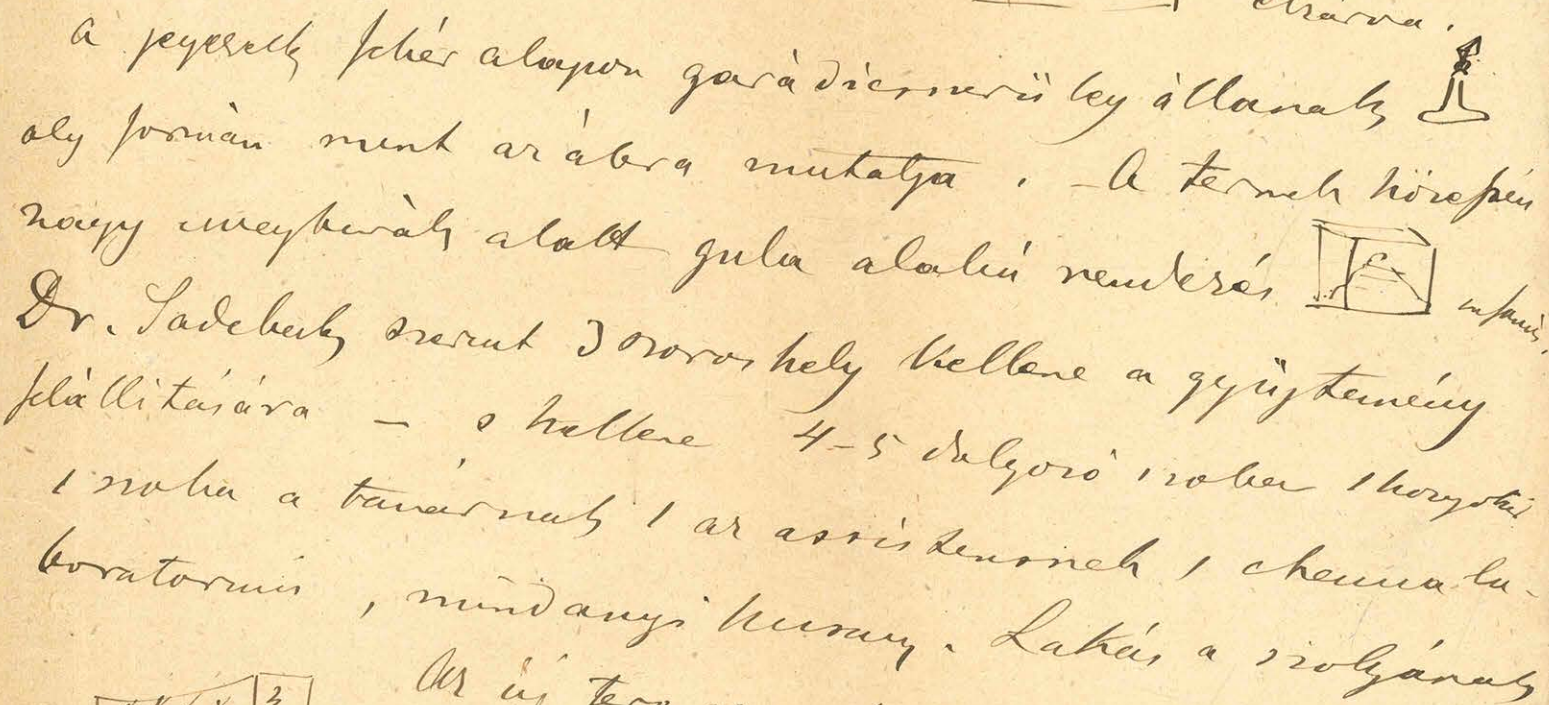 elzárva.
A jegyzetek fehér alapon garádicsszerüleg állanak
oly formán mint az ábra mutatja. – A termek közepén
nagy üvegburák alatt gula alakú rendezés
Dr. Sadebeck szerint 3 szoros hely kellene a gyüjtemény
felállitására – s kellene 4–5 dolgozó szoba 1 konyha
1 szoba a tanárnak 1 az assistensnek 1 chemia la-
boratorium, mindannyi kicsiny. Lakás a szolgának
Az új
3